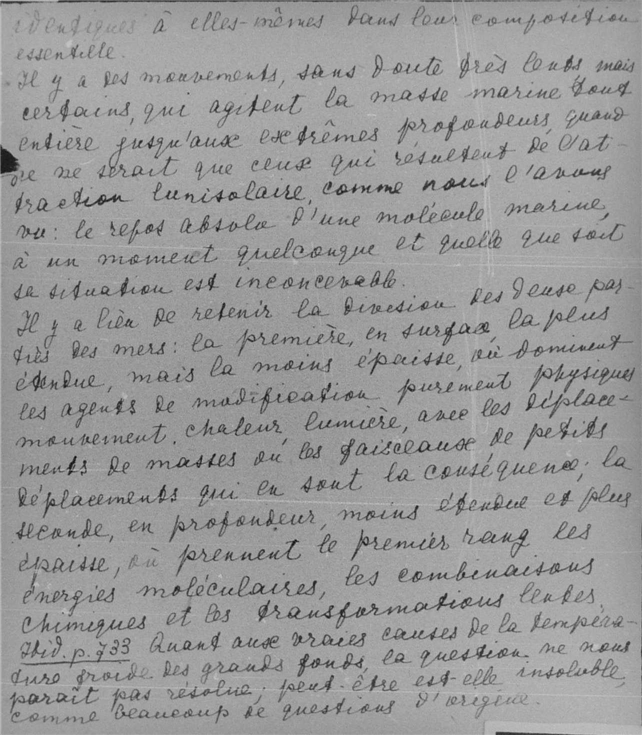 identiques à elles-mêmes dans leur composition
essentielle.
Il y a des mouvements, sans doute très lents mais
certains, qui agitent la masse marine tout
entière jusqu'aux extrêmes profondeurs, quand
ce ne serait que ceux qui résultent de l'at-
traction lunisolaire, comme nous l'avons
vu: le repos absolu d'une molécule marine,
à un moment quelconque et quelle que soit
sa situation est inconcevable.
Il y a lieu de retenir la division des deux par-
ties des mers: la première, en surface, la plus
étendue, mais la moins épaisse, où dominent
les agents de modification purement physiques
mouvement, chaleur, lumière, avec les déplace-
ments de masses ou les faisceaux de petits
déplacements qui en sont la conséquence; la
seconde, en profondeur, moins étendue et plus
épaisse, où prennent le premier rang les
énergies moléculaires, les combinaisons
chimiques et les transformations lentes.
Ibid. p. 733 Quant aux vraies causes de la tempéra-
ture froide des grands fonds, la question ne nous
paraît pas résolue; peut-être est-elle insoluble,
comme beaucoup de questions d'origine.